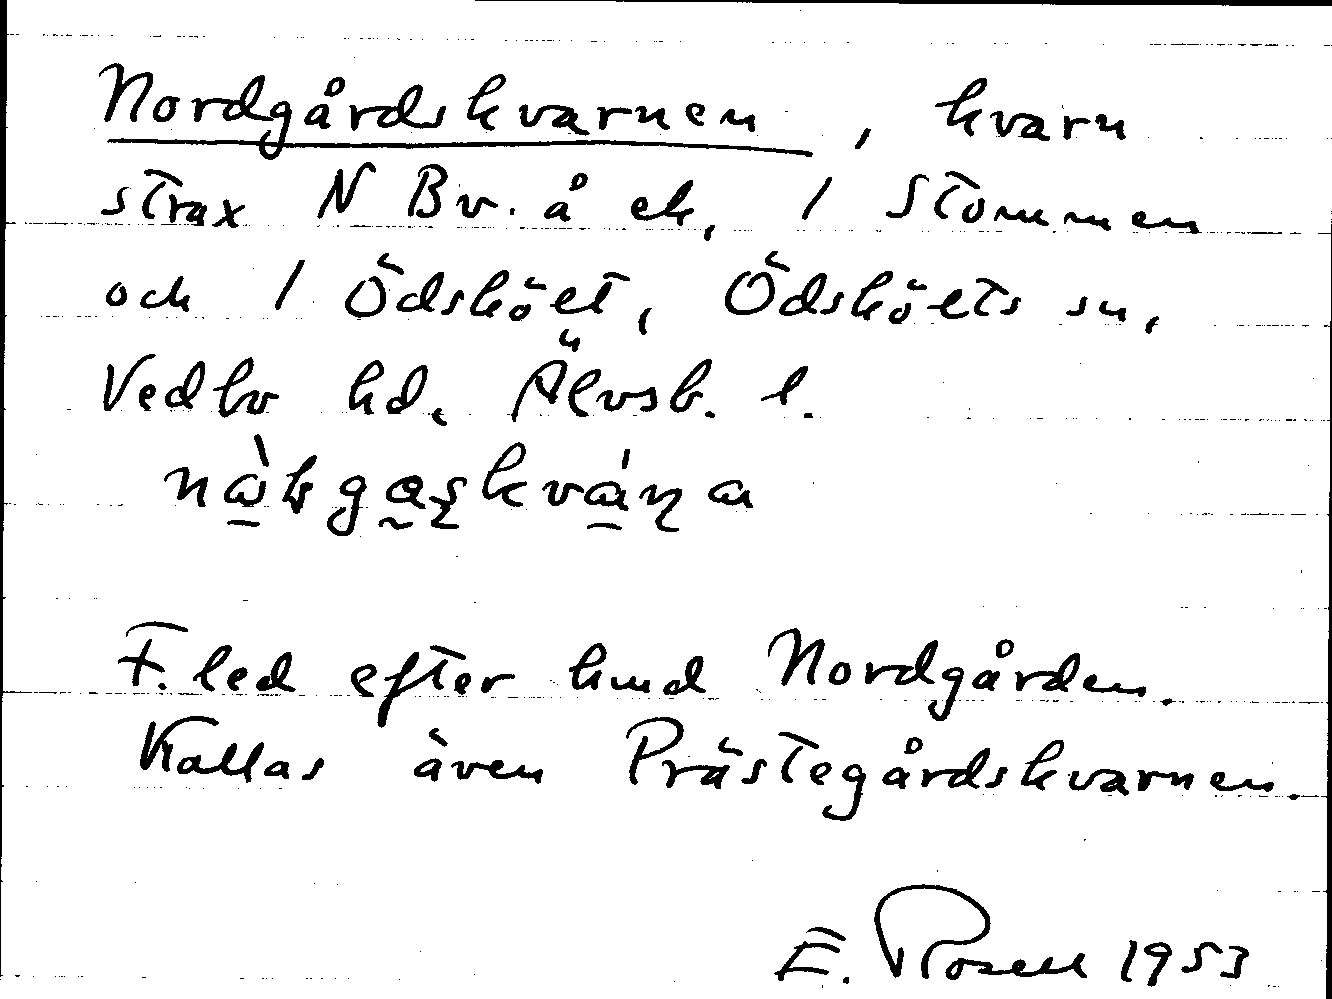 Nordgårdskvarnen, kvarn
strax N Bv. å ek, 1 Stommen
och 1 Ödsköet, Ödsköets sn,
Vedbo hd, Älvsb. l.
F. led efter hmd Nordgården.
Kallas även Prästegårdskvarnen.
E. Rosell 1953